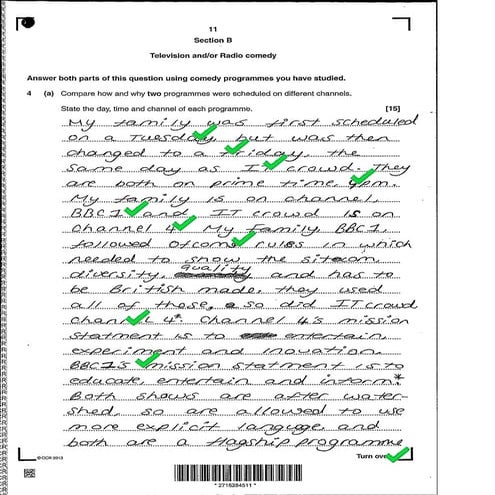 11
Section B
Television and/or Radio comedy
Answer both parts of this question using comedy programmes you have studied.
4 (a) Compare how and why two programmes were scheduled on different channels.
State the day, time and channel of each programme. [15]
My family was first scheduled
on a Tuesday but was then
changed to a friday, the
same day as IT crowd. They
are both on prime time, 9pm.
My family is on channel,
BBC1 and IT crowd is on
Channel 4. My Family, BBC1,
followed Ofcoms rules in which
needed to show the sitcom
diversity, quality and has to
be British made, they used
all of these, so did IT crowd
Channel 4* Channel 4's mission
statment is to entertain,
experiment and inovation.
BBC1's mission statment is to
educate, entertain and inform.*
Both shows are after water-
shed, so are allowed to use
more explicit languge, and
both are a flagship programme
© OCR 2013
Turn over
* 2716284511 *